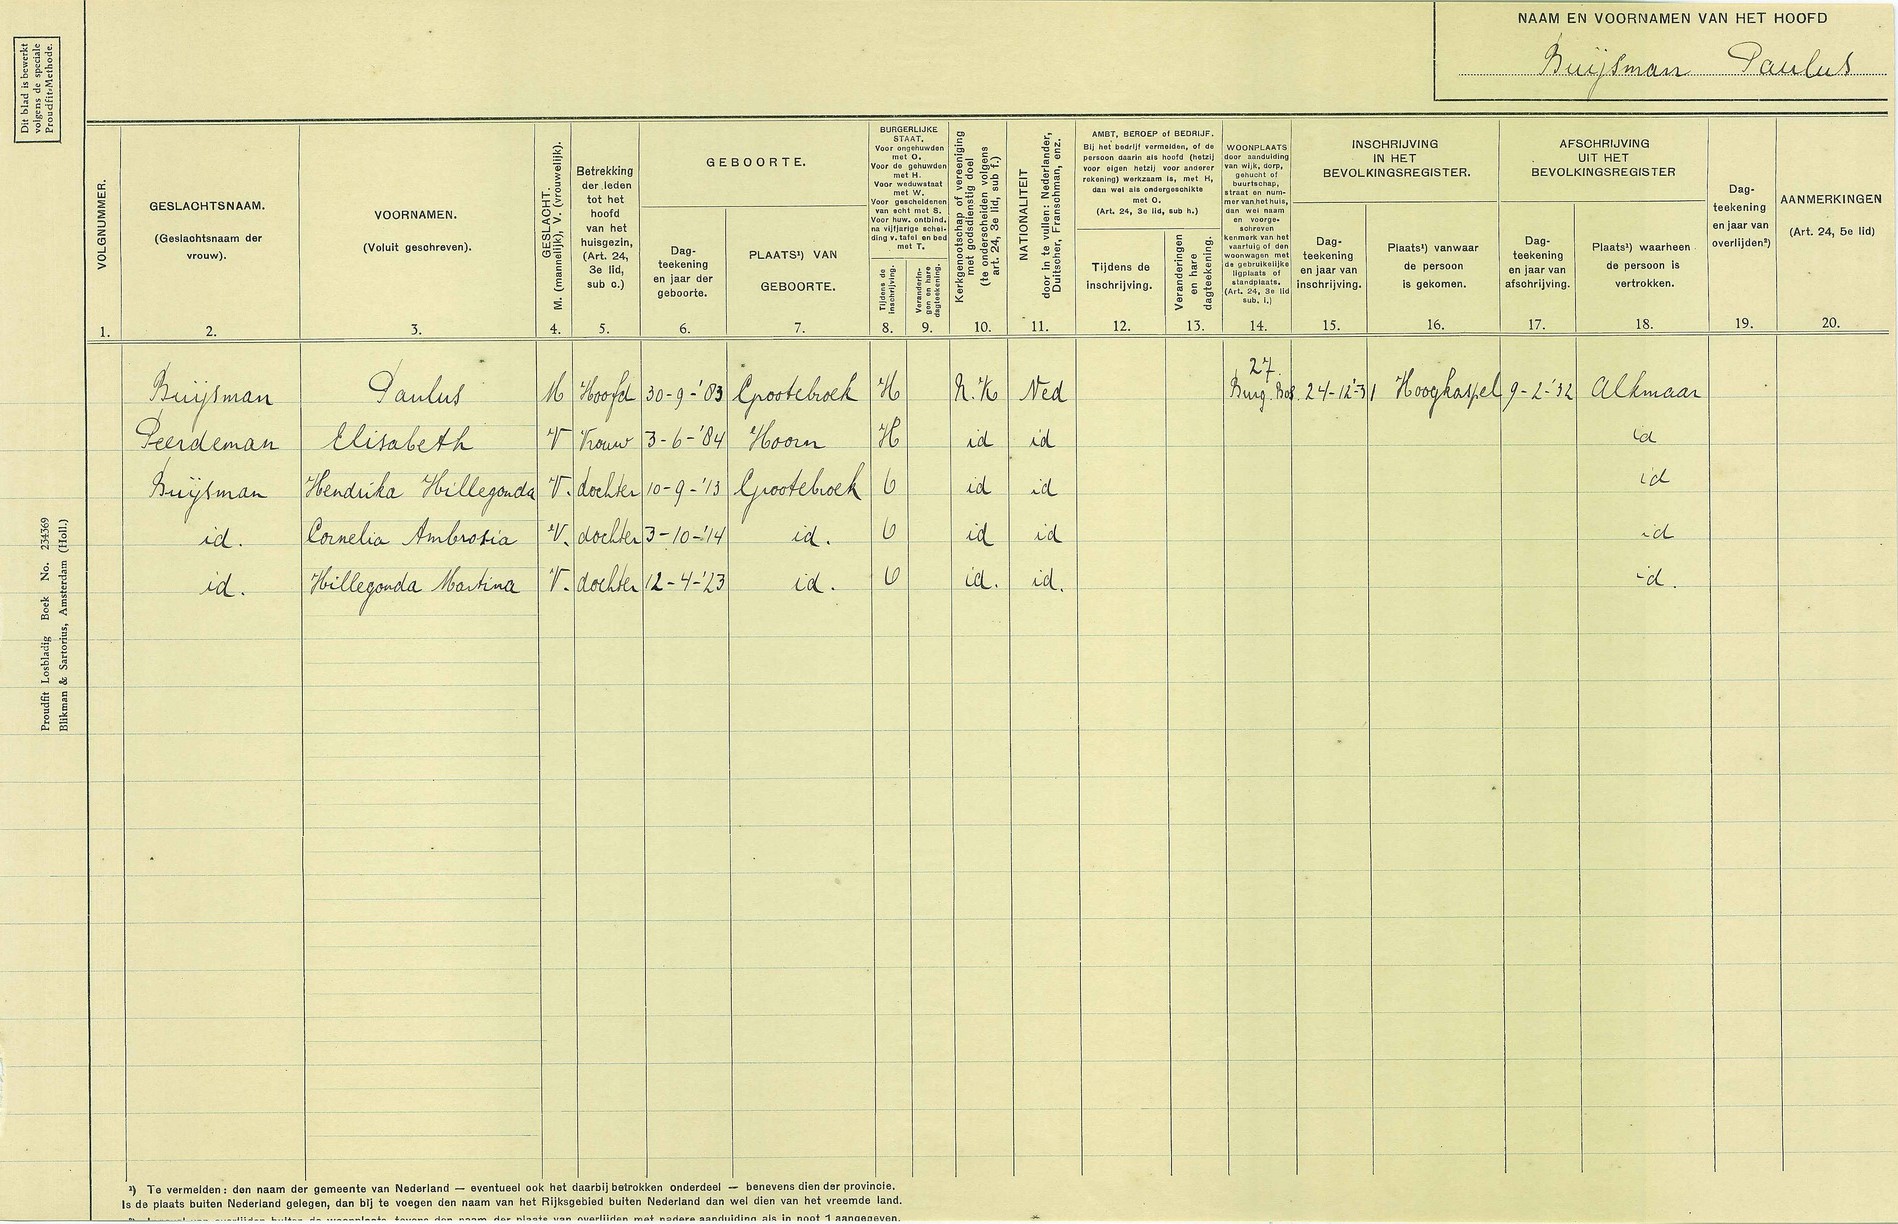 NAAM EN VOORNAMEN VAN HET HOOFD
Buijsman Paulus
Dit blad is bewerkt
volgens de speciale
Proudfit-Methode.
VOLGNUMMER.
1.
GESLACHTSNAAM.
(Geslachtsnaam der
vrouw).
2.
VOORNAMEN.
(Voluit geschreven).
3.
GESLACHT.
M. (mannelijk), V. (vrouwelijk).
4.
Betrekking
der leden
tot het
hoofd
van het
huisgezin,
(Art. 24,
3e lid,
sub c.)
5.
GEBOORTE.
Dag-
teekening
en jaar der
geboorte.
6.
PLAATS¹) VAN
GEBOORTE.
7.
BURGERLIJKE
STAAT.
Voor ongehuwden
met O.
Voor de gehuwden
met H.
Voor weduwstaat
met W.
Voor gescheidenen
van echt met S.
Voor huw. ontbind.
na vijfjarige schei-
ding v. tafel en bed
met T.
Tijdens de
inschrijving.
8.
Veranderin-
gen en hare
dagteekening.
9.
Kerkgenootschap of vereeniging
met godsdienstig doel
(te onderscheiden volgens
art. 24, 3e lid, sub f.)
10.
NATIONALITEIT
door in te vullen: Nederlander,
Duitscher, Franschman, enz.
11.
AMBT, BEROEP of BEDRIJF.
Bij het bedrijf vermelden, of de
persoon daarin als hoofd (hetzij
voor eigen hetzij voor anderer
rekening) werkzaam is, met H,
dan wel als ondergeschikte
met O.
(Art. 24, 3e lid, sub h.)
Tijdens de
inschrijving.
12.
Veranderingen
en hare
dagteekening.
13.
WOONPLAATS
door aanduiding
van wijk, dorp,
gehucht of
buurtschap,
straat en num-
mer van het huis,
dan wel naam
en voorge-
schreven
kenmerk van het
vaartuig of den
woonwagen met
de gebruikelijke
ligplaats of
standplaats.
(Art. 24, 3e lid
sub. i.)
14.
INSCHRIJVING
IN HET
BEVOLKINGSREGISTER.
Dag-
teekening
en jaar van
inschrijving.
15.
Plaats¹) vanwaar
de persoon
is gekomen.
16.
AFSCHRIJVING
UIT HET
BEVOLKINGSREGISTER
Dag-
teekening
en jaar van
afschrijving.
17.
Plaats¹) waarheen
de persoon is
vertrokken.
18.
Dag-
teekening
en jaar van
overlijden²)
19.
AANMERKINGEN
(Art. 24, 5e lid)
20.
27.
Buijsman Paulus M Hoofd 30-9-'83 Grootebroek H R.K Ned Burg. Bos. 24-12-'31 Hoogkaspel 9-2-'32 Alkmaar
Peerdeman Elisabeth V Vrouw 3-6-'84 Hoorn H id id id
Buijsman Hendrika Hillegonda V. dochter 10-9-'13 Grootebroek O id id id
id. Cornelia Ambrosia V. dochter 3-10-'14 id. O id id id
id. Hillegonda Martina V. dochter 12-4-'23 id. O id. id. id.
Proudfit Losbladig Boek No. 234369
Blikman & Sartorius, Amsterdam (Holl.)
¹) Te vermelden: den naam der gemeente van Nederland — eventueel ook het daarbij betrokken onderdeel — benevens dien der provincie.
Is de plaats buiten Nederland gelegen, dan bij te voegen den naam van het Rijksgebied buiten Nederland dan wel dien van het vreemde land.